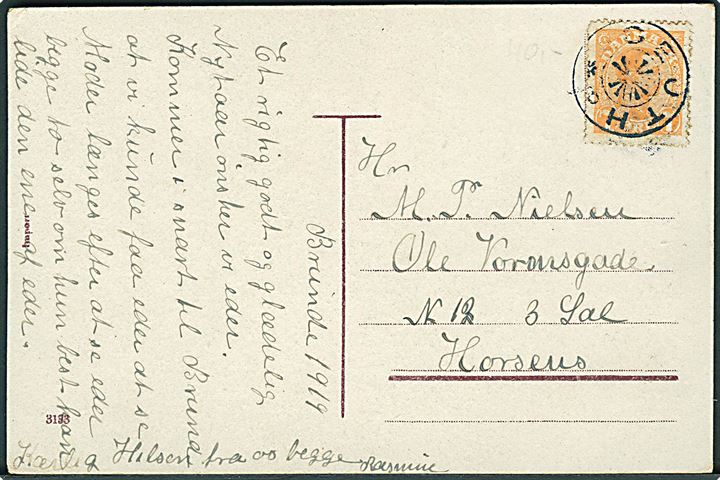 Brunde 1919
Et rigtig godt og glædelig
Nytaar ønsker vi eder.
Kommer i snart til Brunde
at vi kunde faa eder at se
Moder længes efter at se eder
begge to selv om hun best kan
lide den ene af eder.
Kærlig Hilsen fra os begge
Rasmine
Hr
M. P. Nielsen
Ole Vormsgade
N 12 3 Sal
Horsens
3133
GEJUTH
DANMARK
40,-